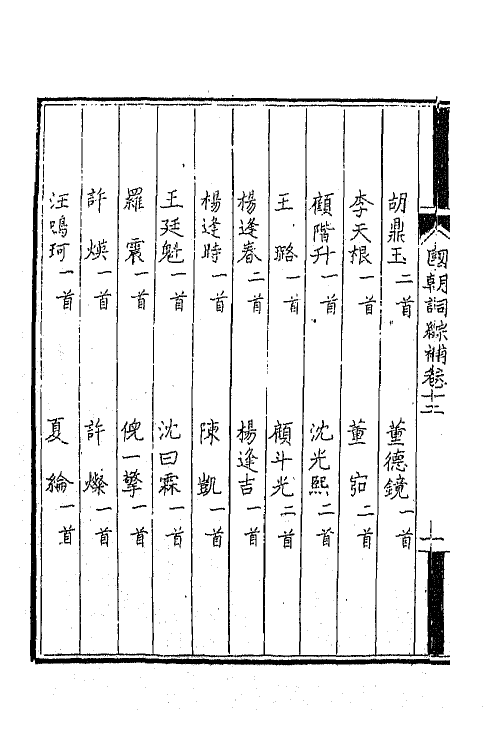 國朝詞綜補卷十二
一
胡鼎玉二首 董德鏡一首
李天根一首 董 二首
顧階升一首 沈光熙二首
王 璐一首 顧斗光二首
楊逢春二首 楊逢吉一首
楊逢時一首 陳 凱一首
王廷魁一首 沈曰霖一首
羅 震一首 倪一擎一首
許 煐一首 許 燦一首
汪鳴珂一首 夏 綸一首